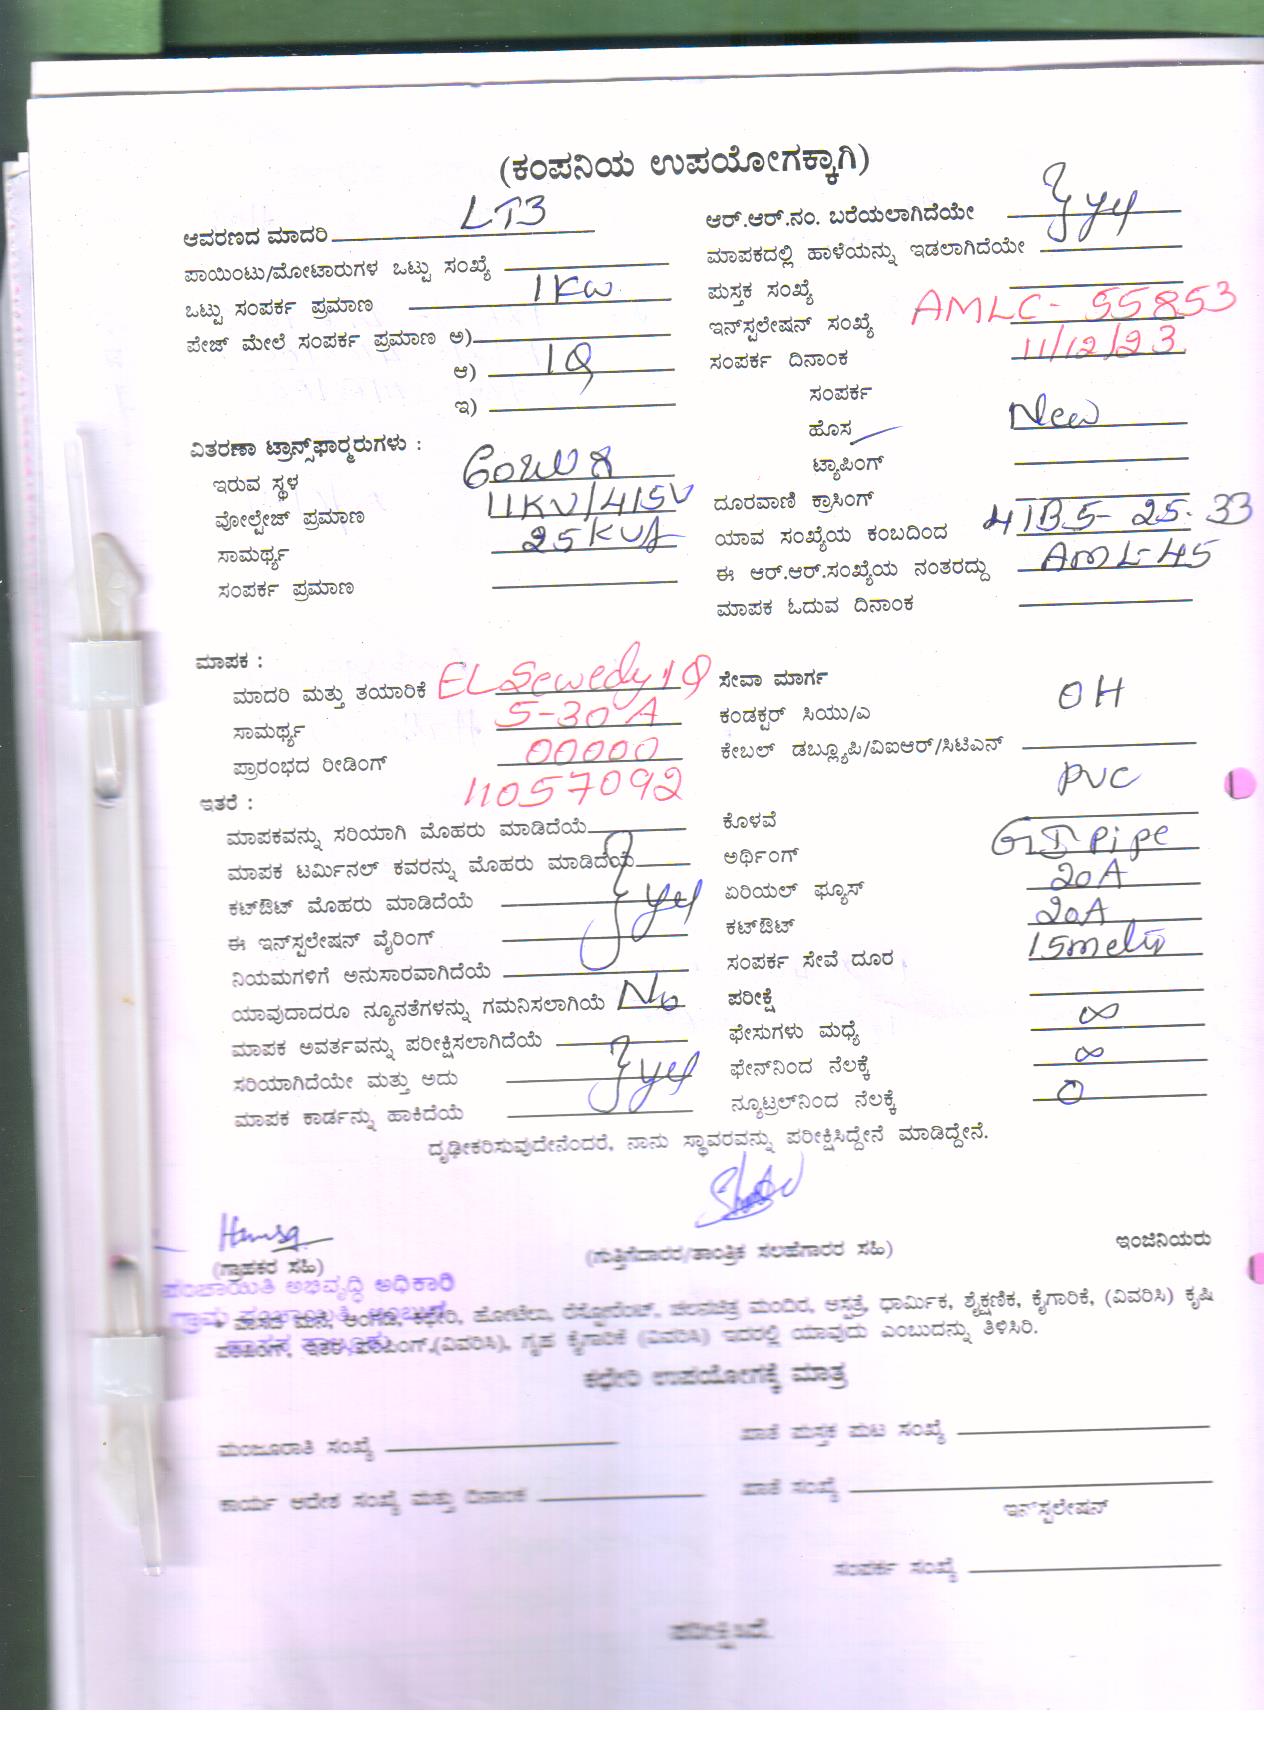 (ಕಂಪನಿಯ ಉಪಯೋಗಕ್ಕಾಗಿ)
ಆವರಣದ ಮಾದರಿ LT3
ಪಾಯಿಂಟು/ಮೋಟಾರುಗಳ ಒಟ್ಟು ಸಂಖ್ಯೆ
ಒಟ್ಟು ಸಂಪರ್ಕ ಪ್ರಮಾಣ 1 KW
ಪೇಜ್ ಮೇಲೆ ಸಂಪರ್ಕ ಪ್ರಮಾಣ ಅ)
ಆ)
ಇ)
ವಿತರಣಾ ಟ್ರಾನ್ಸ್‌ಫಾರ್‍ಮರುಗಳು :
ಇರುವ ಸ್ಥಳ
ವೋಲ್ಟೇಜ್ ಪ್ರಮಾಣ 11KV/415V
ಸಾಮರ್ಥ್ಯ 25KVA
ಸಂಪರ್ಕ ಪ್ರಮಾಣ
ಆರ್.ಆರ್.ನಂ. ಬರೆಯಲಾಗಿದೆಯೇ yes
ಮಾಪಕದಲ್ಲಿ ಹಾಳೆಯನ್ನು ಇಡಲಾಗಿದೆಯೇ
ಪುಸ್ತಕ ಸಂಖ್ಯೆ
ಇನ್‌ಸ್ಟಲೇಷನ್ ಸಂಖ್ಯೆ AMLC- 55853
ಸಂಪರ್ಕ ದಿನಾಂಕ 11/12/23
ಸಂಪರ್ಕ
ಹೊಸ New
ಟ್ಯಾಪಿಂಗ್
ದೂರವಾಣಿ ಕ್ರಾಸಿಂಗ್
ಯಾವ ಸಂಖ್ಯೆಯ ಕಂಬದಿಂದ
ಈ ಆರ್.ಆರ್.ಸಂಖ್ಯೆಯ ನಂತರದ್ದು AML-45
ಮಾಪಕ ಓದುವ ದಿನಾಂಕ
ಮಾಪಕ :
ಮಾದರಿ ಮತ್ತು ತಯಾರಿಕೆ EL Sewedy
ಸಾಮರ್ಥ್ಯ 5-30 A
ಪ್ರಾರಂಭದ ರೀಡಿಂಗ್ 00000
11057092
ಇತರೆ :
ಮಾಪಕವನ್ನು ಸರಿಯಾಗಿ ಮೊಹರು ಮಾಡಿದೆಯೆ
ಮಾಪಕ ಟರ್ಮಿನಲ್ ಕವರನ್ನು ಮೊಹರು ಮಾಡಿದೆಯೆ
ಕಟ್‌ಔಟ್ ಮೊಹರು ಮಾಡಿದೆಯೆ yes
ಈ ಇನ್‌ಸ್ಟಲೇಷನ್ ವೈರಿಂಗ್
ನಿಯಮಗಳಿಗೆ ಅನುಸಾರವಾಗಿದೆಯೆ
ಯಾವುದಾದರೂ ನ್ಯೂನತೆಗಳನ್ನು ಗಮನಿಸಲಾಗಿಯೆ No
ಮಾಪಕ ಅವರ್ತವನ್ನು ಪರೀಕ್ಷಿಸಲಾಗಿದೆಯೆ
ಸರಿಯಾಗಿದೆಯೇ ಮತ್ತು ಅದು yes
ಮಾಪಕ ಕಾರ್ಡನ್ನು ಹಾಕಿದೆಯೆ
ಸೇವಾ ಮಾರ್ಗ
ಕಂಡಕ್ಟರ್ ಸಿಯು/ಎ OH
ಕೇಬಲ್ ಡಬ್ಲ್ಯೂಪಿ/ವಿಐಆರ್/ಸಿಟಿಎನ್
PVC
ಕೊಳವೆ
ಅರ್ಥಿಂಗ್ GI Pipe
ಏರಿಯಲ್ ಫ್ಯೂಸ್ 20A
ಕಟ್‌ಔಟ್ 20A
ಸಂಪರ್ಕ ಸೇವೆ ದೂರ 15meter
ಪರೀಕ್ಷೆ
ಫೇಸುಗಳು ಮಧ್ಯೆ ∞
ಫೇಸ್‌ನಿಂದ ನೆಲಕ್ಕೆ ∞
ನ್ಯೂಟ್ರಲ್‌ನಿಂದ ನೆಲಕ್ಕೆ 0
ದೃಢೀಕರಿಸುವುದೇನೆಂದರೆ, ನಾನು ಸ್ಥಾವರವನ್ನು ಪರೀಕ್ಷಿಸಿದ್ದೇನೆ ಮಾಡಿದ್ದೇನೆ.
(ಗ್ರಾಹಕರ ಸಹಿ)
(ಗುತ್ತಿಗೆದಾರರ/ತಾಂತ್ರಿಕ ಸಲಹೆಗಾರರ ಸಹಿ)
ಇಂಜಿನಿಯರು
ಪಂಚಾಯಿತಿ ಅಭಿವೃದ್ಧಿ ಅಧಿಕಾರಿ
ಮನೆ, ಅಂಗಡಿ, ಕಛೇರಿ, ಹೋಟೆಲು, ರೆಸ್ಟೋರೆಂಟ್, ಚಲನಚಿತ್ರ ಮಂದಿರ, ಆಸ್ಪತ್ರೆ, ಧಾರ್ಮಿಕ, ಶೈಕ್ಷಣಿಕ, ಕೈಗಾರಿಕೆ, (ವಿವರಿಸಿ) ಕೃಷಿ
ಪಂಪಿಂಗ್, ಇತರ ಪಂಪಿಂಗ್,(ವಿವರಿಸಿ), ಗೃಹ ಕೈಗಾರಿಕೆ (ವಿವರಿಸಿ) ಇದರಲ್ಲಿ ಯಾವುದು ಎಂಬುದನ್ನು ತಿಳಿಸಿರಿ.
ಕಛೇರಿ ಉಪಯೋಗಕ್ಕೆ ಮಾತ್ರ
ಮಂಜೂರಾತಿ ಸಂಖ್ಯೆ
ಖಾತೆ ಪುಸ್ತಕ ಪುಟ ಸಂಖ್ಯೆ
ಕಾರ್ಯ ಆದೇಶ ಸಂಖ್ಯೆ ಮತ್ತು ದಿನಾಂಕ
ಖಾತೆ ಸಂಖ್ಯೆ
ಇನ್‌ಸ್ಟಲೇಷನ್
ಸಂಪರ್ಕ ಸಂಖ್ಯೆ
ಪರೀಕ್ಷಿಸಿದೆ.